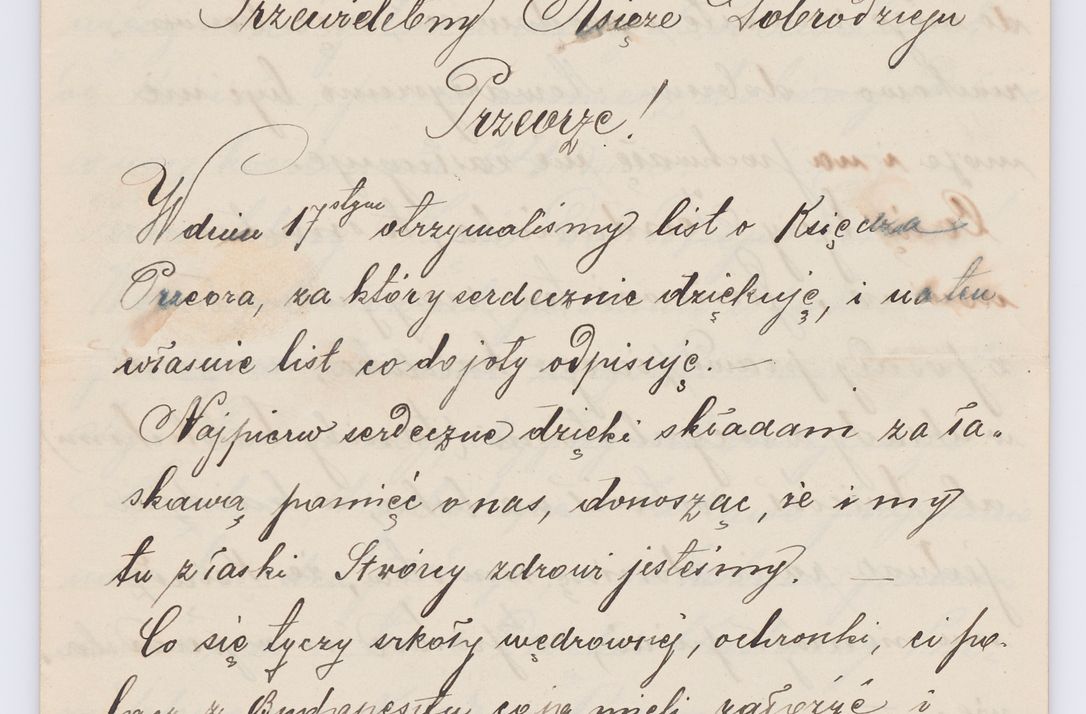 Przewielebny Księże Dobrodzieju
Przeorze!
W dniu 17 stycz otrzymaliśmy list o Księdza
Przeora, za który serdecznie dziękuję, i na ten
właśnie list co do joty odpisuję. —
Najpierw serdeczne dzięki składam za ła-
skawą pamięć o nas, donosząc, że i my
tu z łaski Stwórcy zdrowi jesteśmy. —
Co się tyczy szkoły wędrownej, ochronki, ci po-
lacy z Budapesztu co ją mieli założyć i